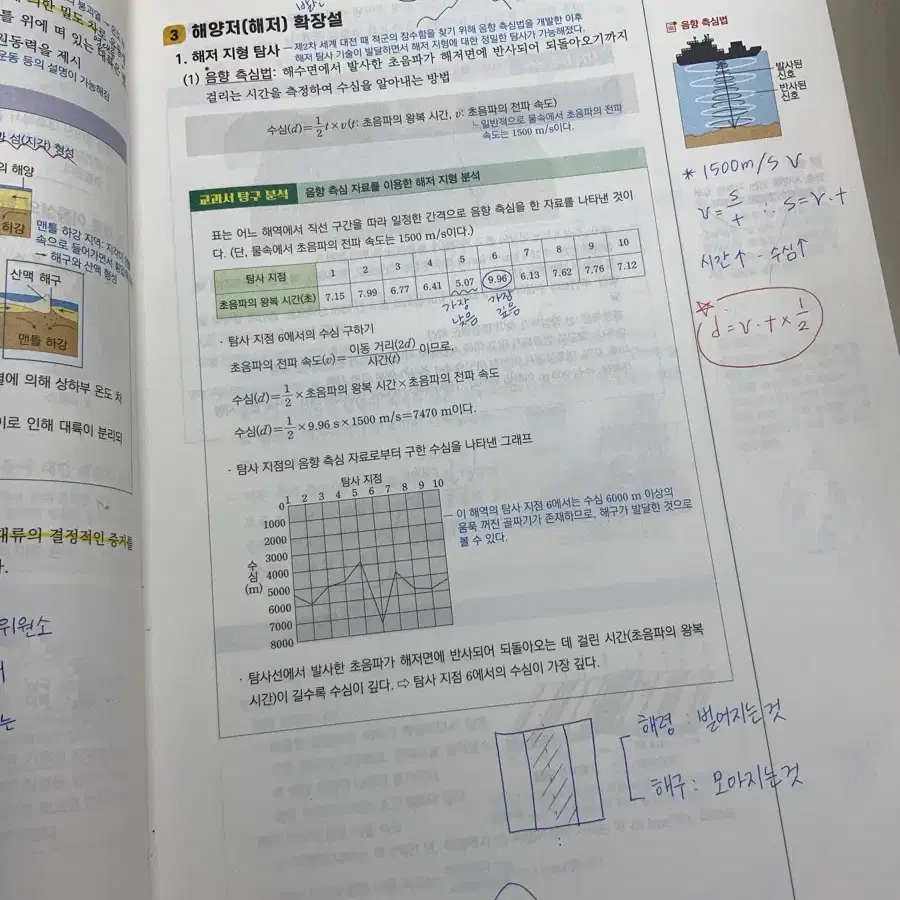 를 위에 떠 있는
원동력을 제시
운동 등의 설명이 가능해짐
섬(지각) 형성
의 해양
하강
맨틀 하강 지역:
속으로 들어가면서
→ 해구와 산맥 형성
산맥 해구
맨틀 하강
열에 의해 상하부 온도 차
이로 인해 대륙이 분리되
대류의 결정적인 증거를
다.
위원소
는
3 해양저(해저) 확장설
1. 해저 지형 탐사 - 제2차 세계 대전 때 적군의 잠수함을 찾기 위해 음향 측심법을 개발한 이후
해저 탐사 기술이 발달하면서 해저 지형에 대한 정밀한 탐사가 가능해졌다.
(1) 음향 측심법: 해수면에서 발사한 초음파가 해저면에 반사되어 되돌아오기까지
걸리는 시간을 측정하여 수심을 알아내는 방법
수심(d)=1/2 t×v(t: 초음파의 왕복 시간, v: 초음파의 전파 속도)
일반적으로 물속에서 초음파의 전파
속도는 1500 m/s이다.
교과서 탐구 분석 음향 측심 자료를 이용한 해저 지형 분석
표는 어느 해역에서 직선 구간을 따라 일정한 간격으로 음향 측심을 한 자료를 나타낸 것이
다. (단, 물속에서 초음파의 전파 속도는 1500 m/s이다.)
탐사 지점 1 2 3 4 5 6 7 8 9 10
초음파의 왕복 시간(초) 7.15 7.99 6.77 6.41 5.07 9.96 6.13 7.62 7.76 7.12
가장 가장
낮음 깊음
· 탐사 지점 6에서의 수심 구하기
초음파의 전파 속도(v)=이동 거리(2d)/시간(t) 이므로,
수심(d)=1/2×초음파의 왕복 시간×초음파의 전파 속도
수심(d)=1/2×9.96 s×1500 m/s=7470 m이다.
· 탐사 지점의 음향 측심 자료로부터 구한 수심을 나타낸 그래프
탐사 지점
1 2 3 4 5 6 7 8 9 10
0
1000
2000
3000
4000
5000
6000
7000
8000
수심(m)
이 해역의 탐사 지점 6에서는 수심 6000 m 이상의
움푹 꺼진 골짜기가 존재하므로, 해구가 발달한 것으로
볼 수 있다.
· 탐사선에서 발사한 초음파가 해저면에 반사되어 되돌아오는 데 걸린 시간(초음파의 왕복
시간)이 길수록 수심이 깊다. ⇨ 탐사 지점 6에서의 수심이 가장 깊다.
해령 : 벌어지는 것
해구 : 모아지는 것
음향 측심법
발사된
신호
반사된
신호
* 1500m/s v
v = s/t ∴ s = v·t
시간↑ - 수심↑
☆ d = v·t × 1/2